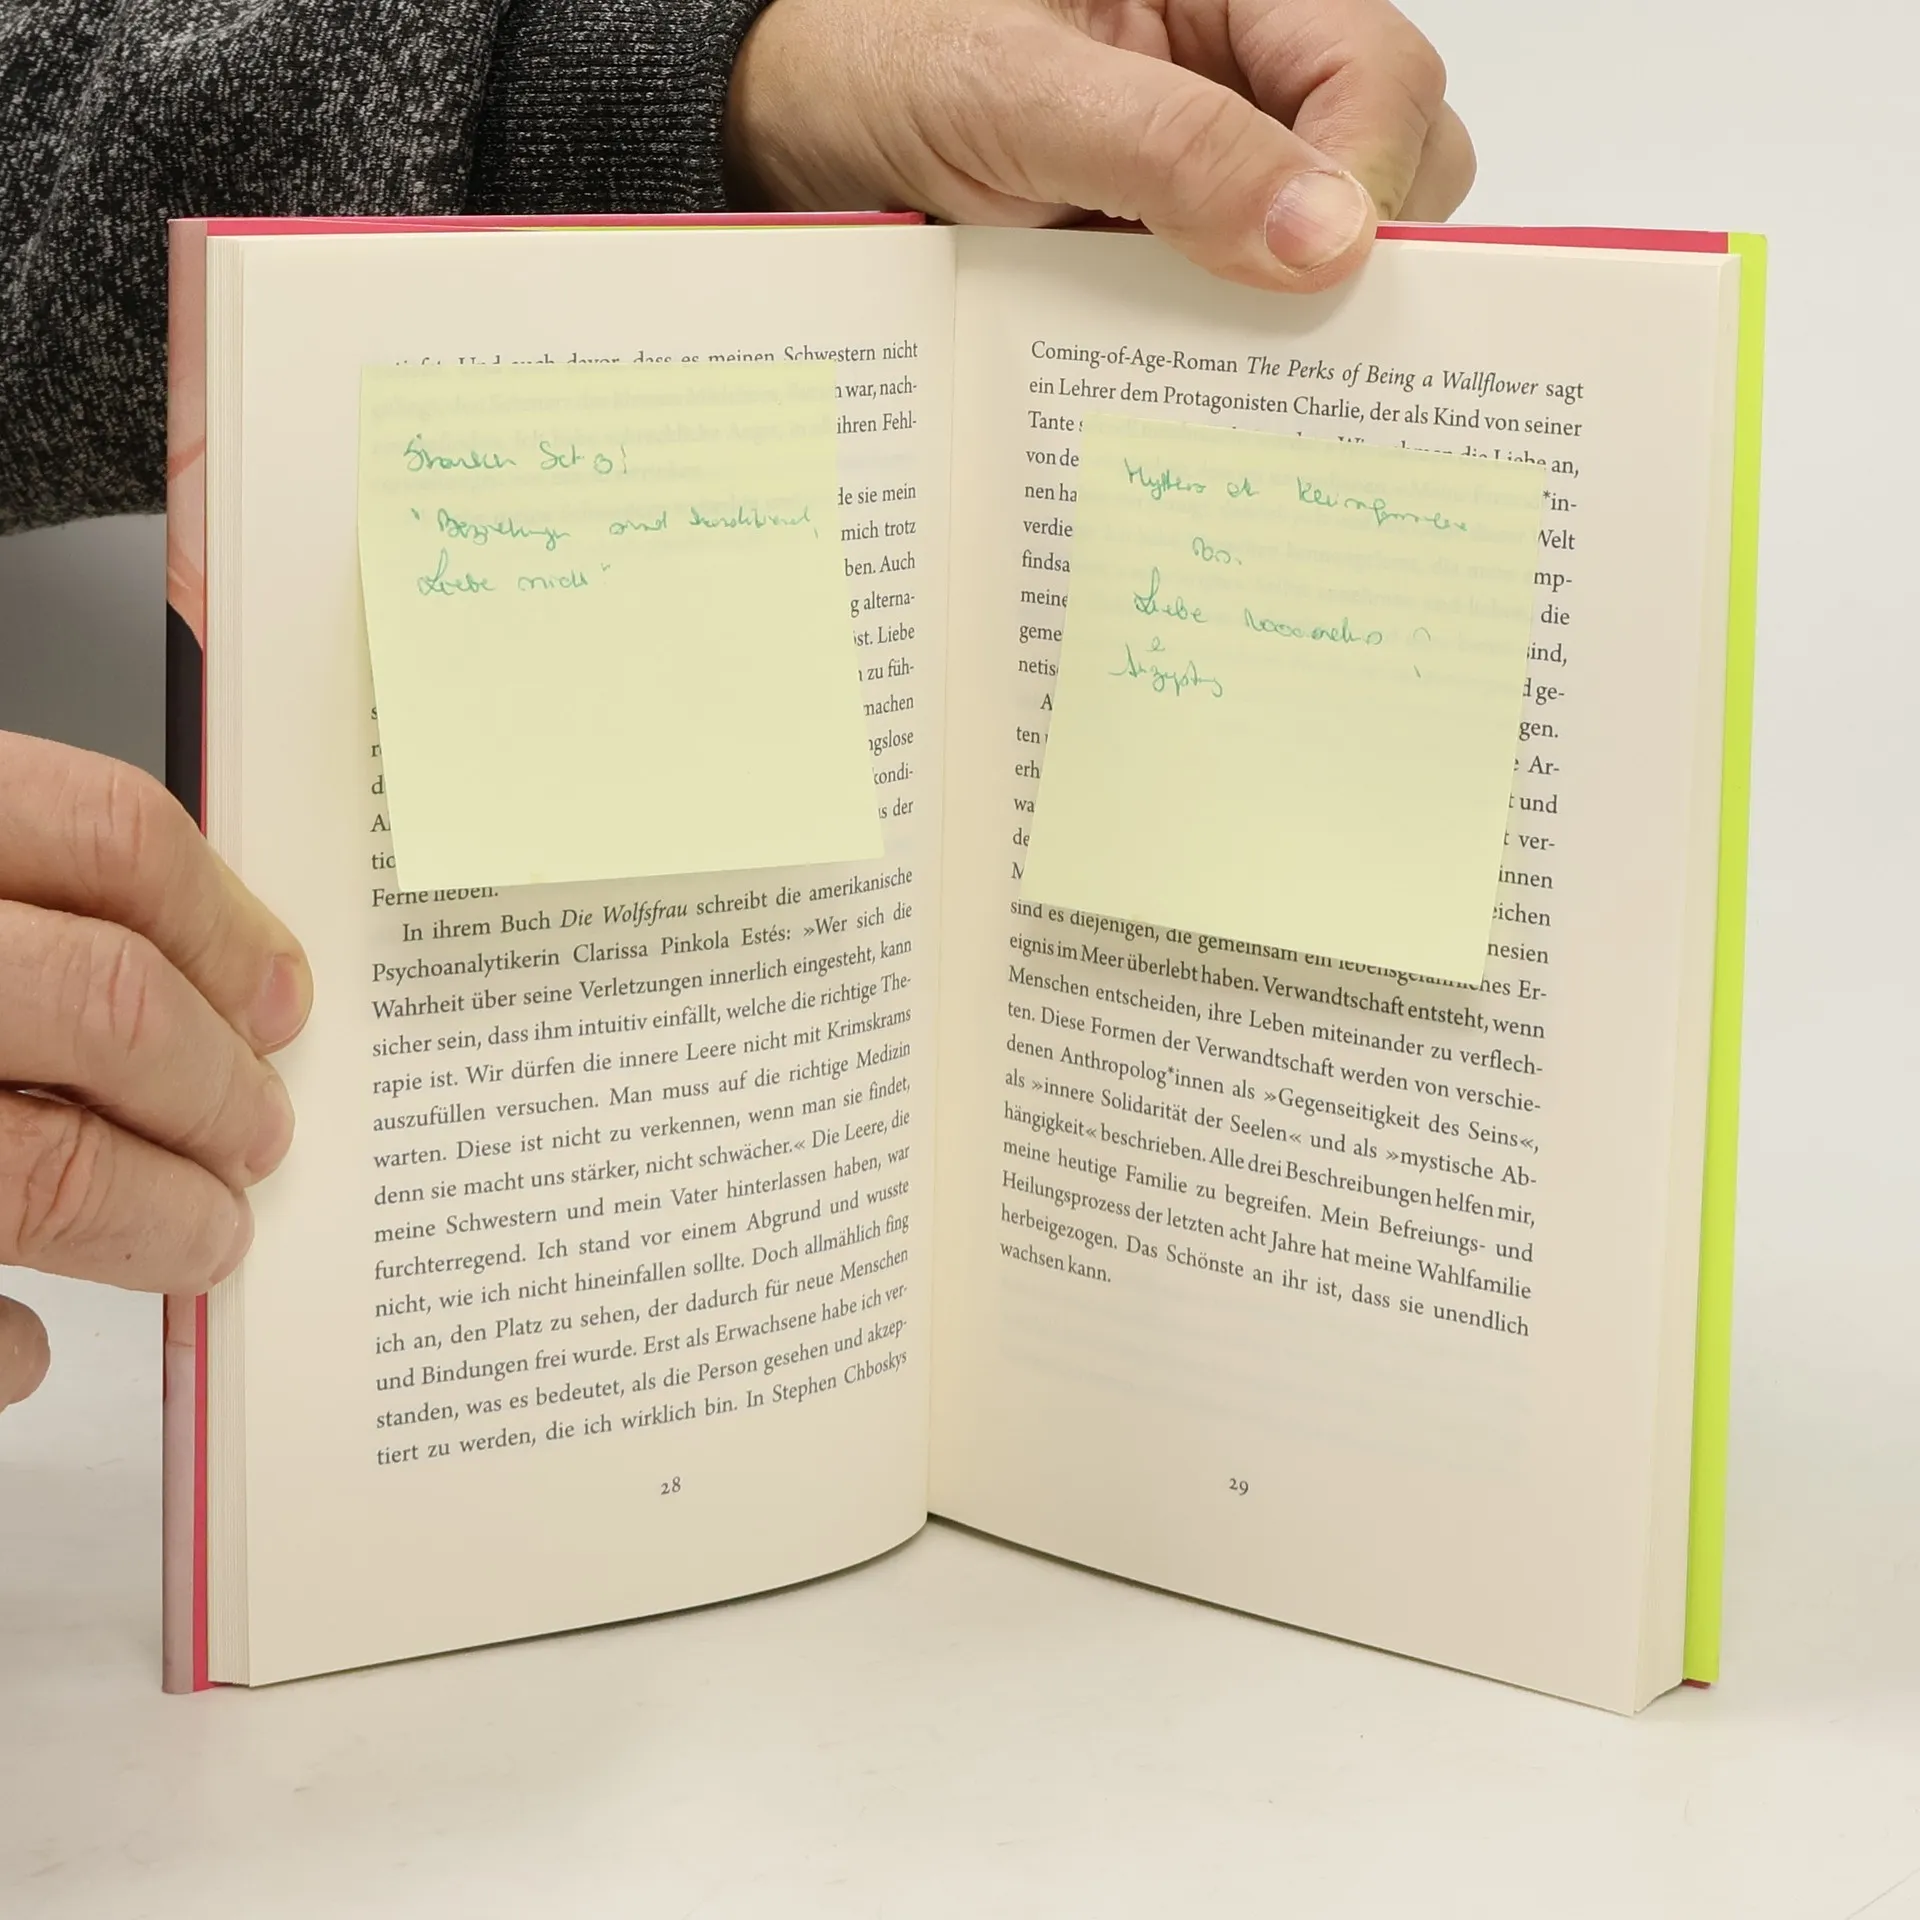 dass es meinen Schwestern nicht
war, nach-
ihren Fehl-
Beziehungen sind konditional,
Liebe nicht"
de sie mein
mich trotz
ben. Auch
g alterna-
ist. Liebe
zu füh-
machen
ngslose
kondi-
s der
tio
Ferne lieben.
In ihrem Buch Die Wolfsfrau schreibt die amerikanische
Psychoanalytikerin Clarissa Pinkola Estés: »Wer sich die
Wahrheit über seine Verletzungen innerlich eingesteht, kann
sicher sein, dass ihm intuitiv einfällt, welche die richtige The-
rapie ist. Wir dürfen die innere Leere nicht mit Krimskrams
auszufüllen versuchen. Man muss auf die richtige Medizin
warten. Diese ist nicht zu verkennen, wenn man sie findet,
denn sie macht uns stärker, nicht schwächer.« Die Leere, die
meine Schwestern und mein Vater hinterlassen haben, war
furchterregend. Ich stand vor einem Abgrund und wusste
nicht, wie ich nicht hineinfallen sollte. Doch allmählich fing
ich an, den Platz zu sehen, der dadurch für neue Menschen
und Bindungen frei wurde. Erst als Erwachsene habe ich ver-
standen, was es bedeutet, als die Person gesehen und akzep-
tiert zu werden, die ich wirklich bin. In Stephen Chboskys
28
Coming-of-Age-Roman The Perks of Being a Wallflower sagt
ein Lehrer dem Protagonisten Charlie, der als Kind von seiner
Tante die Liebe an,
von de *in-
nen ha Welt
verdie mp-
findsa die
meine sind,
geme d ge-
netis gen.
Kleinfamilie
vs.
Liebe
A Ar-
ten t und
erh ver-
wa innen
de eichen
M nesien
sind es diejenigen, die gemeinsam ein lebensgefährliches Er-
eignis im Meer überlebt haben. Verwandtschaft entsteht, wenn
Menschen entscheiden, ihre Leben miteinander zu verflech-
ten. Diese Formen der Verwandtschaft werden von verschie-
denen Anthropolog*innen als »Gegenseitigkeit des Seins«,
als »innere Solidarität der Seelen« und als »mystische Ab-
hängigkeit« beschrieben. Alle drei Beschreibungen helfen mir,
meine heutige Familie zu begreifen. Mein Befreiungs- und
Heilungsprozess der letzten acht Jahre hat meine Wahlfamilie
herbeigezogen. Das Schönste an ihr ist, dass sie unendlich
wachsen kann.
29